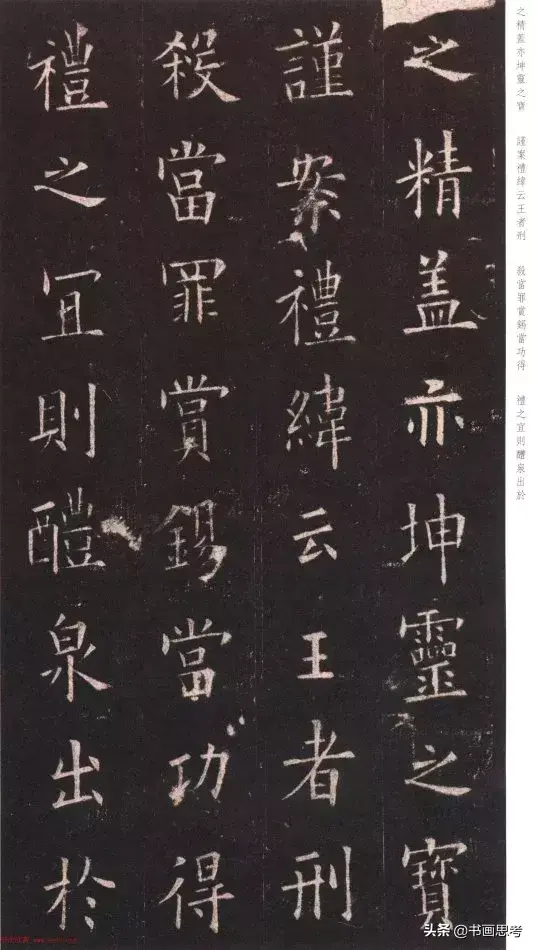 之精蓋亦坤靈之寶
謹案禮緯云王者刑
殺當罪賞錫當功得
禮之宜則醴泉出於
之精蓋亦坤靈之寶
謹案禮緯云王者刑
殺當罪賞錫當功得
禮之宜則醴泉出於
头条@书画思考